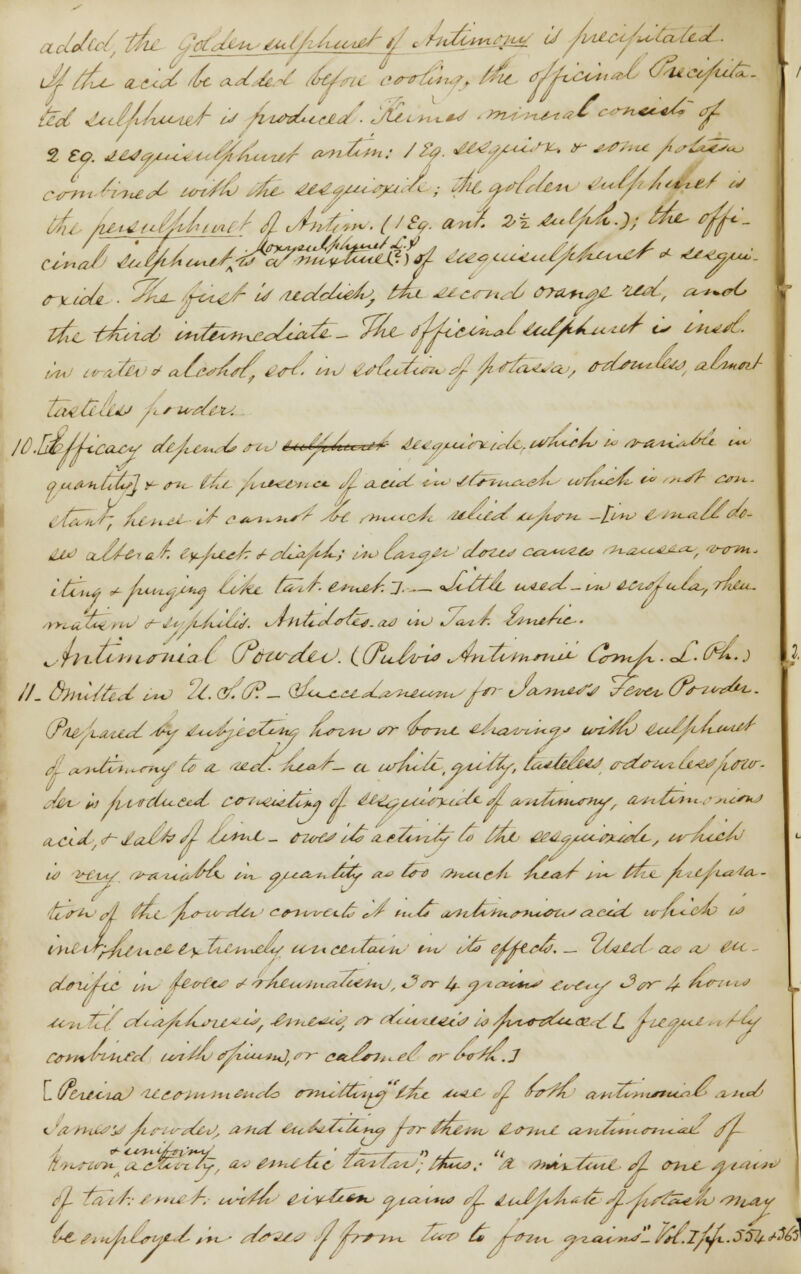 added, the Golden sulphuret of Antimony is precipitated.
If the acid be added before cooling, the officinal Precipita-
ted Sulphuret is produced. Kermes mineral consists of
2 Eq. sesquisulphuret antim: 1 Eq. sesquiox. & some potassa
combined with the sesquioxide; the golden sulphuret is
the persulphuret of Antim. (1 Eq. ant. 2½ sulph.); the offi-
cinal Sulphuret ^ is a mixture (?) of sesquisulphuret & sesqui-
oxysulphuret L.P
oxide. The first is reddish, the second orange red, and
the third intermediate - The officinal sulphuret is insol.
in water & alcohol, sol. in solution of potassa, odourless, almost
tasteless powder.
10. [Efficacy depends on sulphuret sesquioxide, which is variable in
quantity] & on the presence of acid in stomach which is not con-
stant, hence it cannot be much relied upon - [in small do-
ses alterat. expect. & diaph; in larger doses causes nausea, vom-
iting & purging like tart. emet.]. — Little used - in scrofula, rheu-
matism & syphilis. Antidotes as in Tart. Emetic.
Antimonial Powder. (Pulvis Antimonii Comp. L. Ph.)
11. Omitted in U. S. P. - Succedaneum for James's Fever Powder.
Prepared by subjecting horn or bone shavings with sulphuret
of antimony to a red heat - a white, gritty, tasteless, odourless pow-
der is produced consisting of sesquioxide of antimony, antimonious
acid, & salts of lime - owes its activity to the sesquioxide, which
is very variable in quantity as too much heat in the prepara-
tion of the powder converts it into antimonious acid which is
inert, hence extremely uncertain in its effects. - Used as a su-
dorific in fevers & rheumatism, 3 or 4 grains every 3 or 4 hours
until diaphoresis, emesis, or diuresis is produced [frequently
combined with opium, or calomel or both.]
[Pereira recommends omitting "the use of both antimonial and
James's powder, and substituting for them some antimonial of
known ^ activity, as emetic tartar", thus: "a mixture of one grain
& uniform
of tart: emet. with sixteen grains of sulphate of potash may
be employed in doses of from two to four grains" - Vol. I pp. 554 & 365